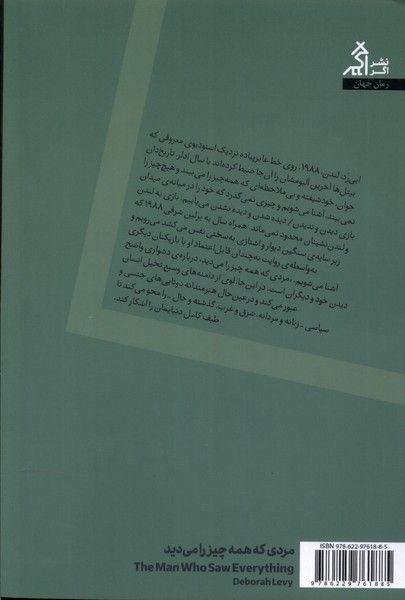 نشر
اگر
رمان جهان
ابی رُد لندن، ۱۹۸۸. روی خط عابرپیاده نزدیک استودیوی معروفی که
بیتل‌ها آخرین آلبومشان را آن‌جا ضبط کرده‌اند با سال ادلر، تاریخ‌دان
جوان خودشیفته و بی‌ملاحظه‌ای که همه‌چیز را می‌بیند و هیچ‌چیز را
نمی‌بیند، آشنا می‌شویم و چیزی نمی‌گذرد که خود را در میانه‌ی میدان
بازی دیدن و ندیدن/ دیده شدن و دیده نشدن می‌یابیم. بازی به لندن
و لندن‌نشینان محدود نمی‌ماند. همراه سال به برلین شرقی ۱۹۸۸ که
زیر سایه‌ی سنگین دیوار و اشتازی به‌سختی نفس می‌کشد می‌رویم و
به‌واسطه‌ی روایت نه‌چندان قابل‌اعتماد او با بازیگران دیگری
آشنا می‌شویم. «مردی که همه چیز را می‌دید» درباره‌ی دشواری واضح
دیدن خود و دیگران است. در این‌جا، لوی از دامنه‌های وسیع تخیل انسان
عبور می‌کند و در عین‌حال هنرمندانه دوتایی‌های جنسی و
سیاسی ـ زنانه و مردانه، شرق و غرب، گذشته و حال ـ را محو می‌کند تا
طیف کامل دنیایمان را آشکار کند.
مردی که همه چیز را می‌دید
The Man Who Saw Everything
Deborah Levy
ISBN 978-622-97618-8-5
9 786229 761885